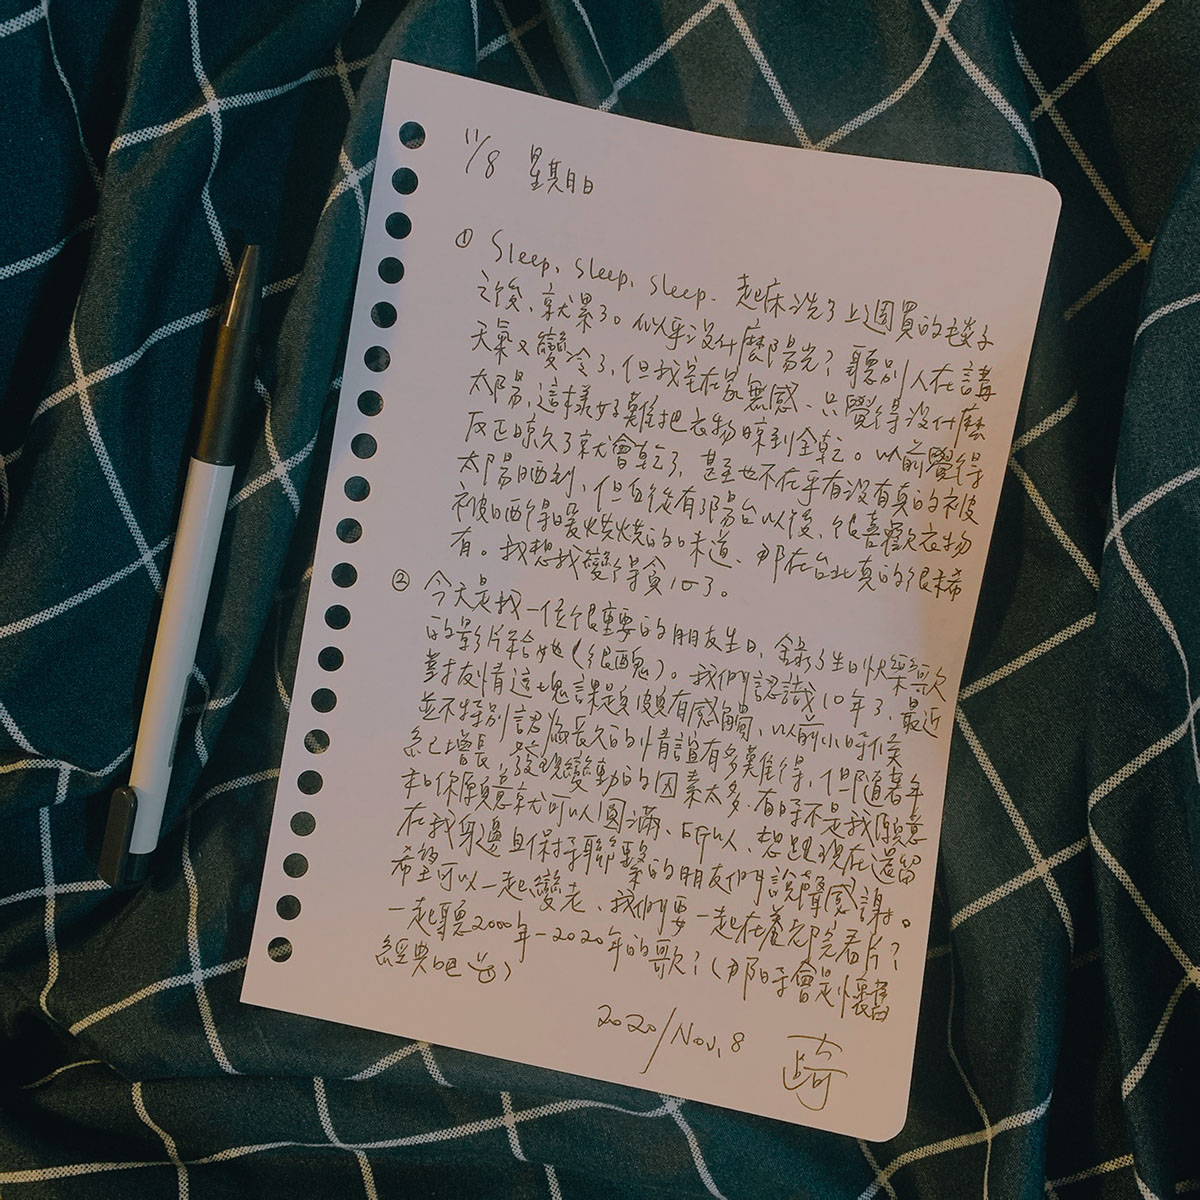 11/8 星期日
① Sleep, sleep, sleep. 起床洗了上週買的毯子
之後、就累了。似乎沒什麼陽光？聽別人在講
天氣又變冷了，但我宅在家無感、只覺得沒什麼
太陽，這樣好難把衣物晾到全乾。以前覺得
反正晾久了就會乾了，甚至也不在乎有沒有真的被
太陽晒到，但自從有了陽台以後、很喜歡衣物
被晒得暖烘烘的味道、那在台北真的很稀
有。我想我變得貪心了。
② 今天是我一位很重要的朋友生日、錄了生日快樂歌
的影片給她（很醜）。我們認識10年了、最近
對友情這塊課題頗有感觸，以前小時候
並不特別認為長久的情誼有多難得，但隨著年
紀增長、發現變動的因素太多，有時不是我願意
和你願意就可以圓滿、所以、想跟現在還留
在我身邊且保持聯繫的朋友們說聲感謝。
希望可以一起變老、我們要一起在養老院看片？
一起聽2000年-2020年的歌？（那時會是懷舊
經典吧）
2020/Nov, 8